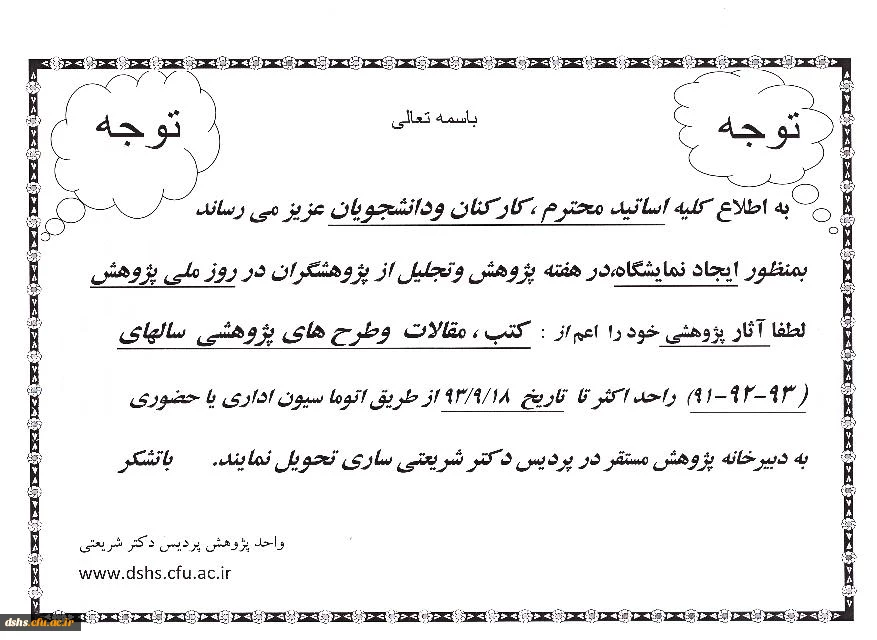 باسمه تعالی
توجه
توجه
به اطلاع کلیه اساتید محترم ،کارکنان ودانشجویان عزیز می رساند
بمنظور ایجاد نمایشگاه،در هفته پژوهش وتجلیل از پژوهشگران در روز ملی پژوهش
لطفا آثار پژوهشی خود را اعم از : کتب ، مقالات وطرح های پژوهشی سالهای
(۹۱-۹۲-۹۳) راحد اکثر تا تاریخ ۹۳/۹/۱۸ از طریق اتوما سیون اداری یا حضوری
به دبیرخانه پژوهش مستقر در پردیس دکتر شریعتی ساری تحویل نمایند. باتشکر
واحد پژوهش پردیس دکتر شریعتی
www.dshs.cfu.ac.ir
dshs.cfu.ac.ir